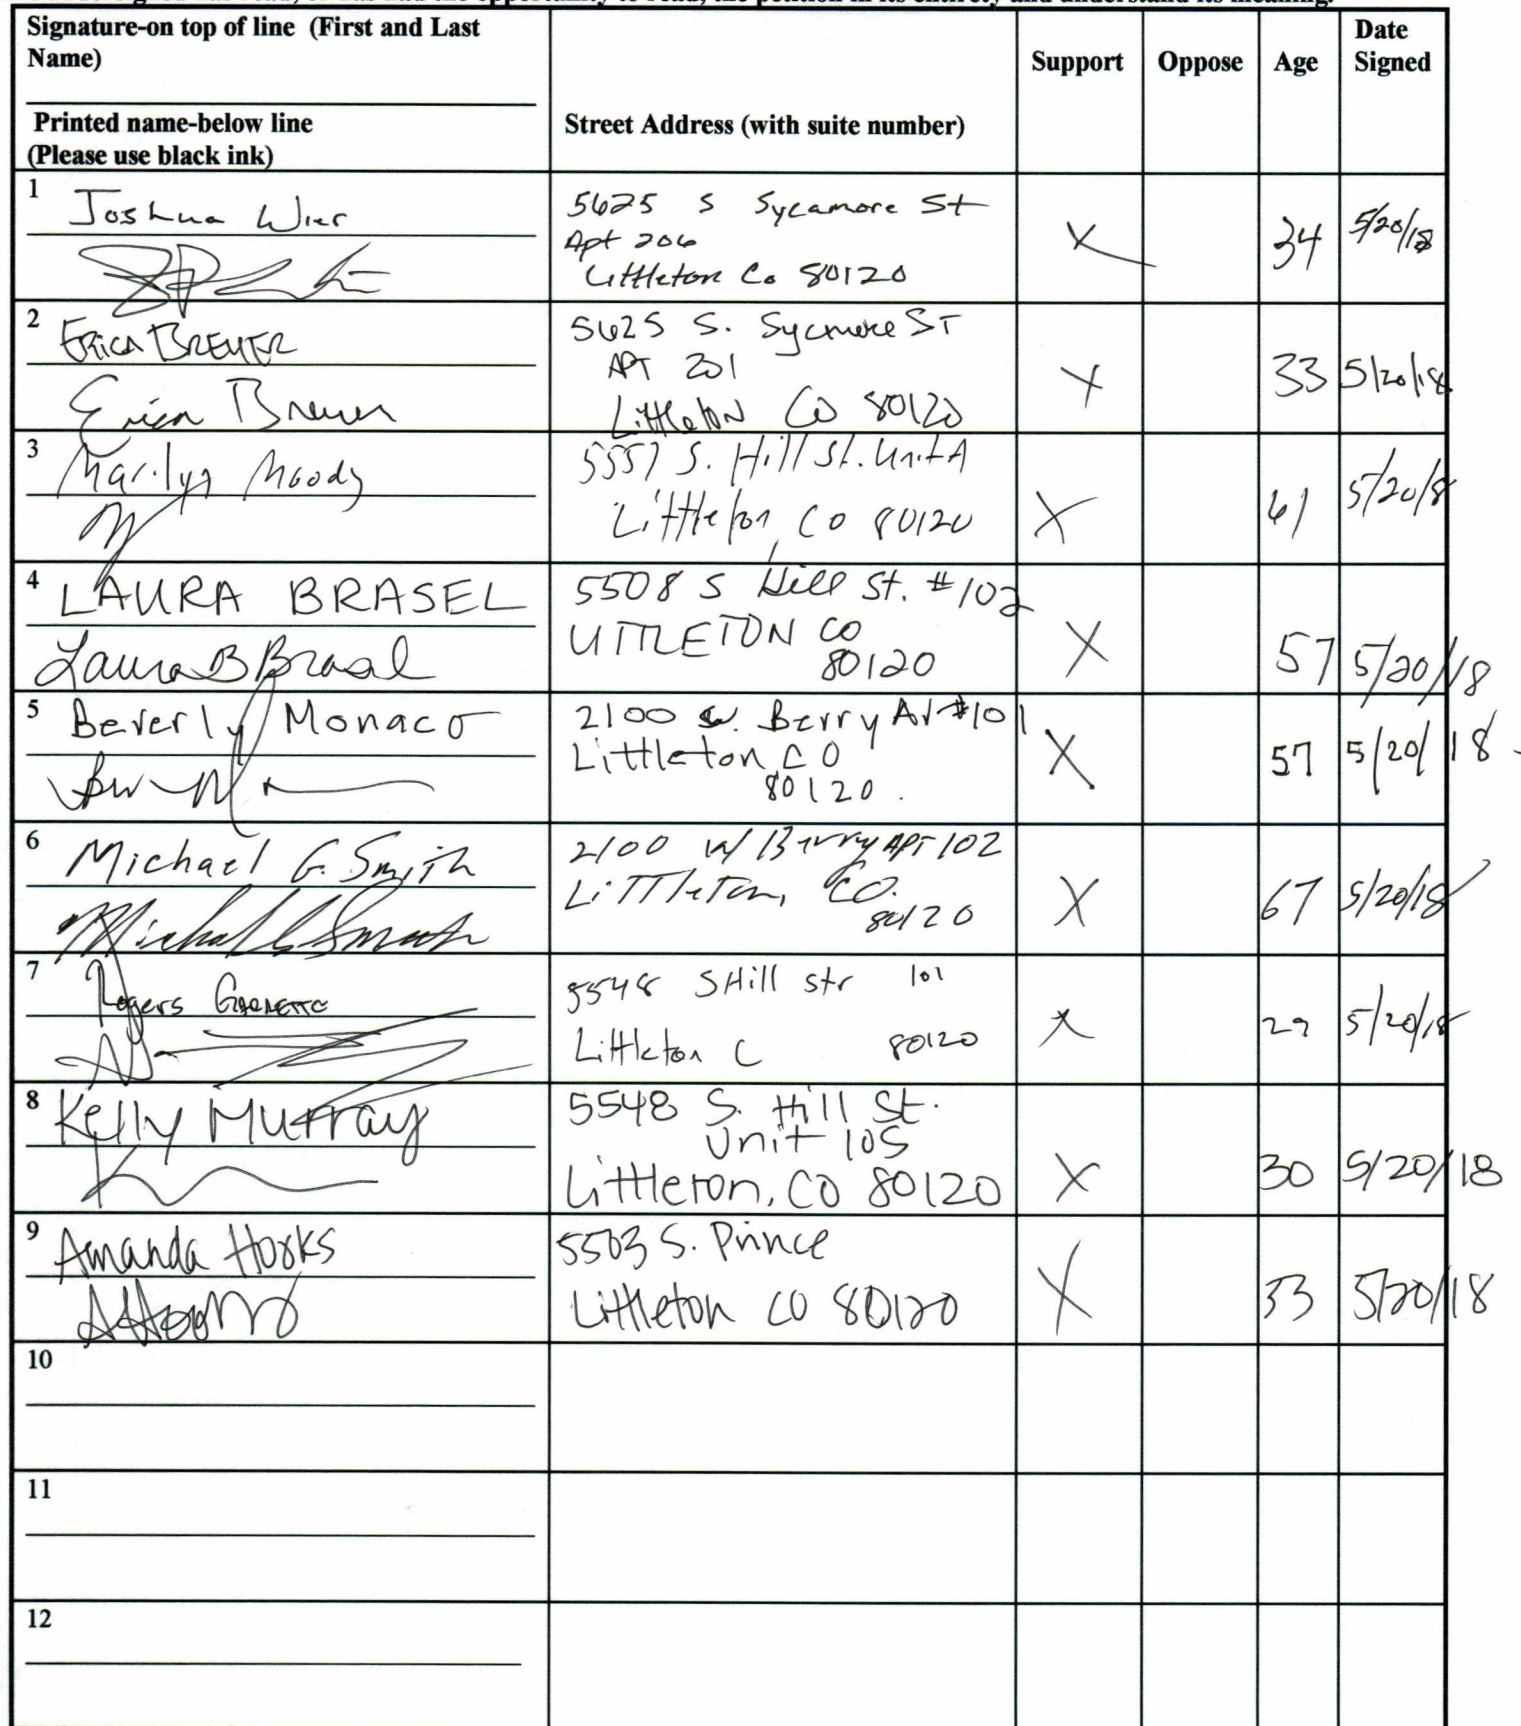 Signature-on top of line (First and Last
Name)
Support Oppose Age Date
Signed
Printed name-below line
(Please use black ink)
Street Address (with suite number)
1 Joshua Wier
5625 S Sycamore St
Apt 206
Littleton Co 80120
34 5/20/18
2 Erica BREMER
Erica Bremer
5625 S. Sycmore ST
APT 201
Littleton CO 80120
X 33 5/20/18
3 Marilyn Moody
5557 S. Hill St. Unit A
Littleton, CO 80120
X 61 5/20/8
4 LAURA BRASEL
Laura B Brasel
5508 S Hill St. #102
LITTLETON CO
80120
X 57 5/20/18
5 Beverly Monaco
2100 W. Berry Av #101
Littleton CO
80120.
X 57 5/20/18
6 Michael G. Smith
Michael G Smith
2100 W Berry APT 102
LiTTleTon, CO.
80120
X 67 5/20/18
7 Rogers
5548 S Hill str 101
Littleton C 80120
X 29 5/20/18
8 Kelly Murray
5548 S. Hill St.
Unit 105
Littleton, CO 80120
X 30 5/20/18
9 Amanda Hooks
5503 S. Prince
Littleton CO 80120
X 33 5/20/18
10
11
12